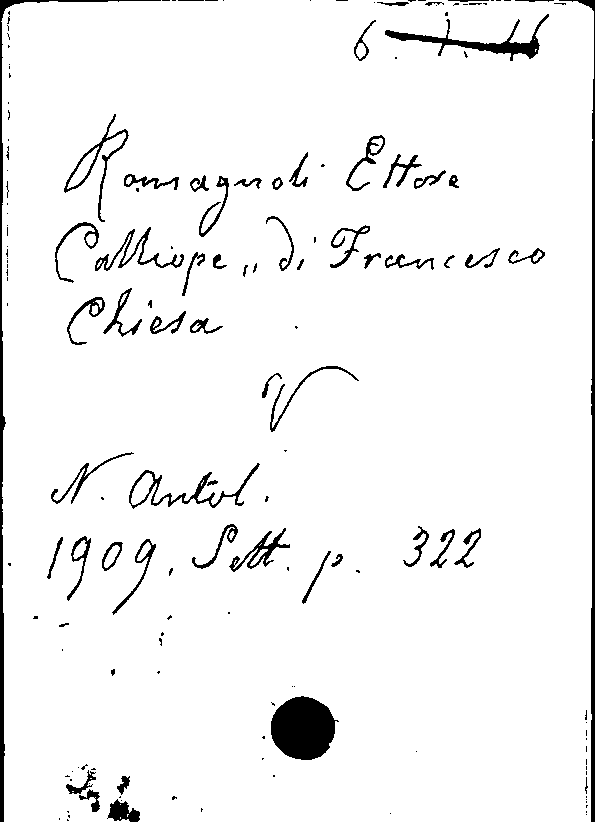 6. 1. 46
Romagnoli Ettore
Calliope „ di Francesco
Chiesa
V
N. Antol.
1909. Sett. p. 322